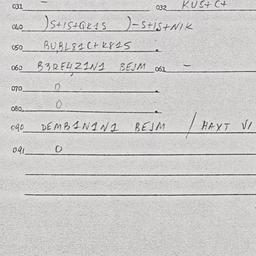 031 – 032 KUS+C+
040 )S+1S+GK1S )-S+1S+N1K
050 BUBL81C+K81S .
060 B3RE4Z1N1 BEJM 061 –
070 0
080 0
090 DEMB1N1N1 BEJM / HAXT V1
091 0